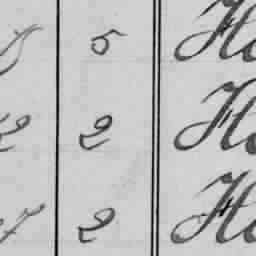 5 Ho
2 2 Ho
7 2 Ho